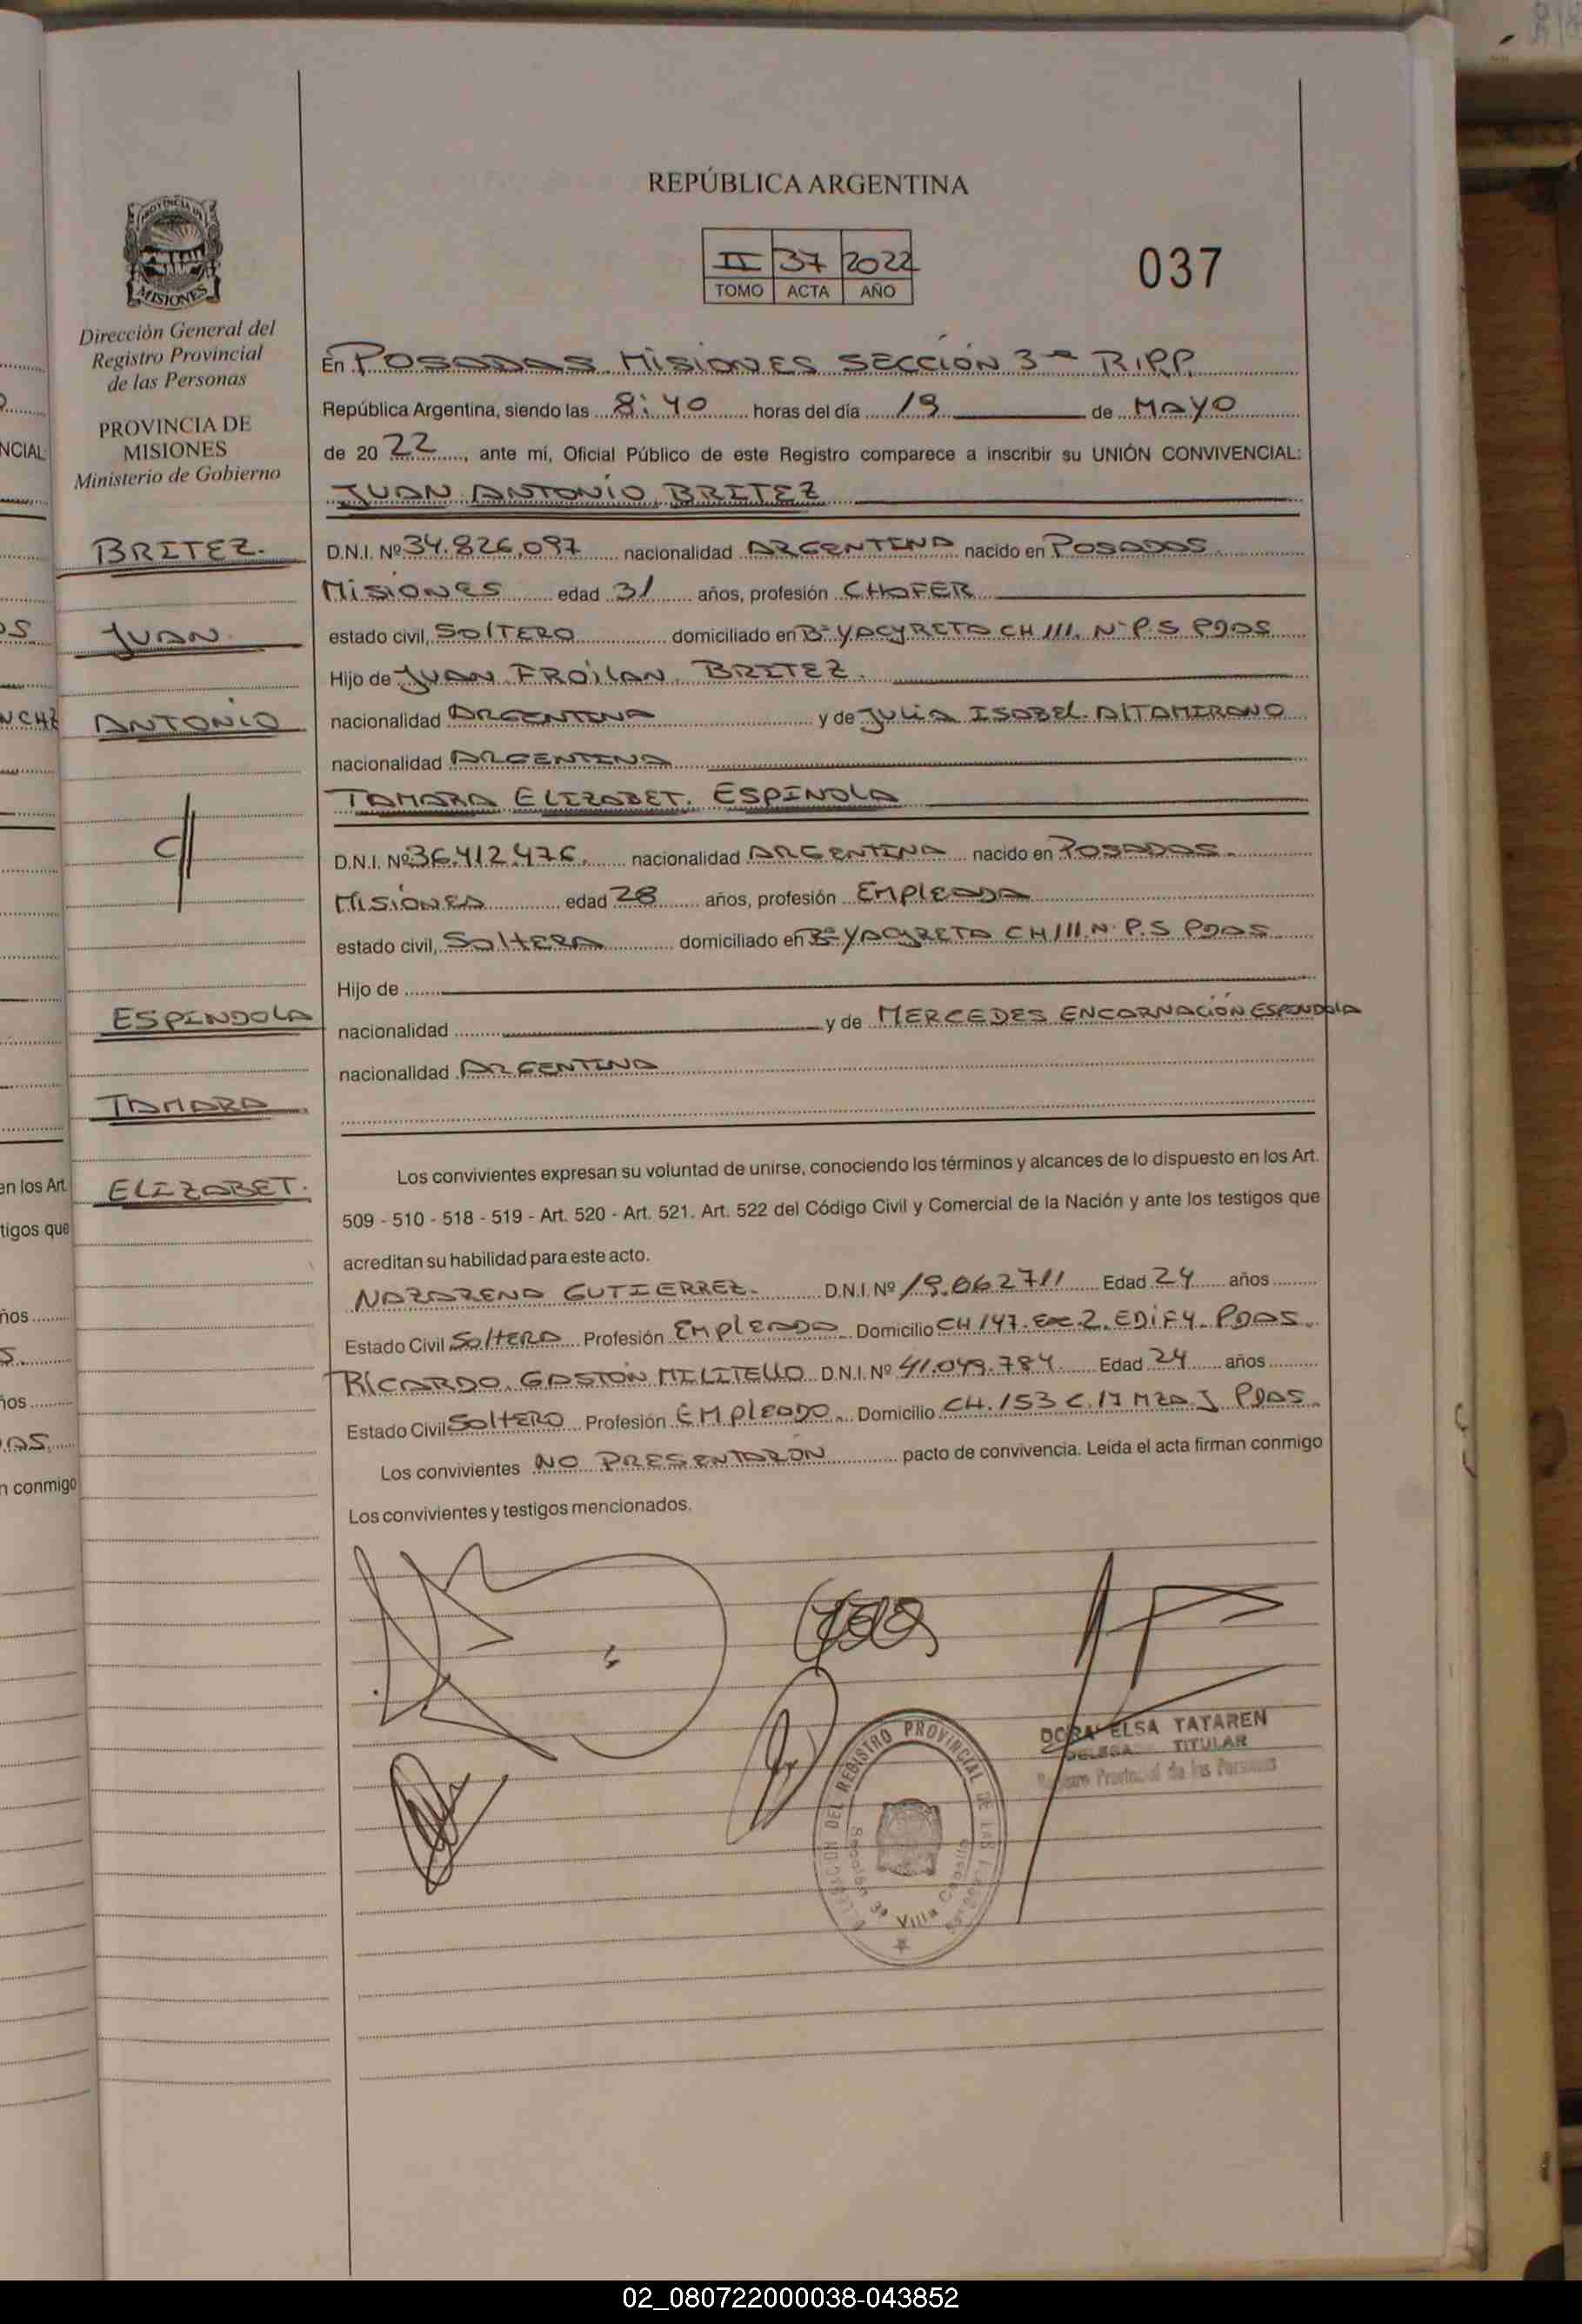 REPÚBLICA ARGENTINA
II 37 2022
TOMO ACTA AÑO
037
PROVINCIA DE
MISIONES
Dirección General del
Registro Provincial
de las Personas
PROVINCIA DE
MISIONES
Ministerio de Gobierno
BRITEZ.
JUAN
ANTONIO
C//
ESPINDOLA
TAMARA
ELIZABET.
En POSADAS MISIONES SECCIÓN 3ª R.P.P.
República Argentina, siendo las 8:40 horas del día 19 de MAYO
de 2022, ante mí, Oficial Público de este Registro comparece a inscribir su UNIÓN CONVIVENCIAL:
JUAN ANTONIO BRITEZ
D.N.I. Nº 34.826.097 nacionalidad ARGENTINA nacido en POSADAS
MISIONES edad 31 años, profesión CHOFER
estado civil, SOLTERO domiciliado en Bº YACYRETA CH 111. Nº P.S PDAS
Hijo de JUAN FROILAN BRITEZ.
nacionalidad ARGENTINA y de JULIA ISABEL ALTAMIRANO
nacionalidad ARGENTINA
TAMARA ELIZABET. ESPINOLA
D.N.I. Nº 36.412.476. nacionalidad ARGENTINA nacido en POSADAS.
MISIONES edad 28 años, profesión EMPLEADA
estado civil, SOLTERA domiciliado en Bº YACYRETA CH 111. N. P.S PDAS
Hijo de
nacionalidad y de MERCEDES ENCARNACIÓN ESPINDOLA
nacionalidad ARGENTINA
Los convivientes expresan su voluntad de unirse, conociendo los términos y alcances de lo dispuesto en los Art.
509 - 510 - 518 - 519 - Art. 520 - Art. 521. Art. 522 del Código Civil y Comercial de la Nación y ante los testigos que
acreditan su habilidad para este acto.
NAZARENA GUTIERREZ. D.N.I. Nº 19.062711 Edad 24 años
Estado Civil SOLTERA Profesión EMPLEADA Domicilio CH 147. ESC. 2. EDIF 4. PDAS.
RICARDO. GASTÓN MILITELLO D.N.I. Nº 41.049.784 Edad 24 años
Estado Civil SOLTERO Profesión EMPLEADO. Domicilio CH. 153 C. 17 MZA J PDAS.
Los convivientes NO PRESENTARÓN pacto de convivencia. Leída el acta firman conmigo
Los convivientes y testigos mencionados.
DORA ELSA TATAREN
DELEGA TITULAR
Registro Provincial de las Personas
DEL REGISTRO PROVINCIAL DE LAS
Sección 3ª Villa Cabello
NCIAL
OS
NCHZ
en los Art.
tigos que
ños
S.
ños
DAS
n conmigo
02_080722000038-043852